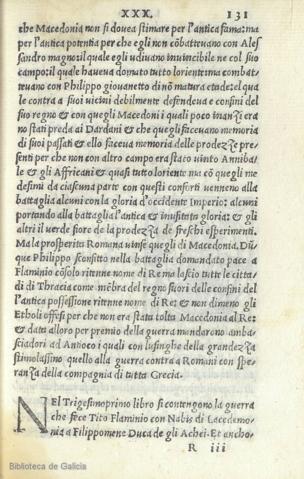 XXX. 131
che Macedonia non si douea stimare per l'antica fama: ma
per l'antica potentia per che egli non cōbatteuano con Ales
sandro magno: il quale egli udiuano inuincibile ne col suo
campo: il quale haueua domato tutto lorientema combat
teuano con Philippo giouanetto di nō matura etade: el qua
le contra a suoi uicini debilmente defendeua e confini del
suo regno & con quegli Macedoni i quali poco inanzi era
no stati preda ai Dardani & che quegli faceuano memoria
di suoi passati & ello faceua memoria delle prodezze pre
senti per che non con altro campo era staco uinto Anniba
le & gli Affricani & quasi tutto loriente: ma cō quegli me
desimi da ciascuna parte con questi conforti uennero alla
battaglia alcuni con la gloria d'occidente Imperio: alcuni
portando alla battaglia l'antica & inusitata gloria: & gli
altri il uerde fiore de la prodezza de freschi esperimenti.
Ma la prosperita Romana uinse quegli di Macedonia. Dū
que Philippo sconfitto nella battaglia domandato pace a
Flaminio cōsolo ritenne nome di Re ma lascio tutte le citta
di di Thracia come mēbra del regno fuori delle confini del
l'antica possessione ritenne nome di Re: & non dimeno gli
Etholi offesi per che non era stata tolta Macedonia al Re:
& data alloro per premio della guerra mandorono amba
sciadori ad Antioco i quali con lusinghe della grandezza
stimolassino quello alla guerra contra a Romani con spe
ranza della compagnia di tutta Grecia.
NEl Trigesimoprimo libro si contengono la guerra
che fece Tito Flaminio con Nabis di Lacedemo
nia a Filippomene Duca de gli Achei. Et ancho
R iii
Biblioteca de Galicia